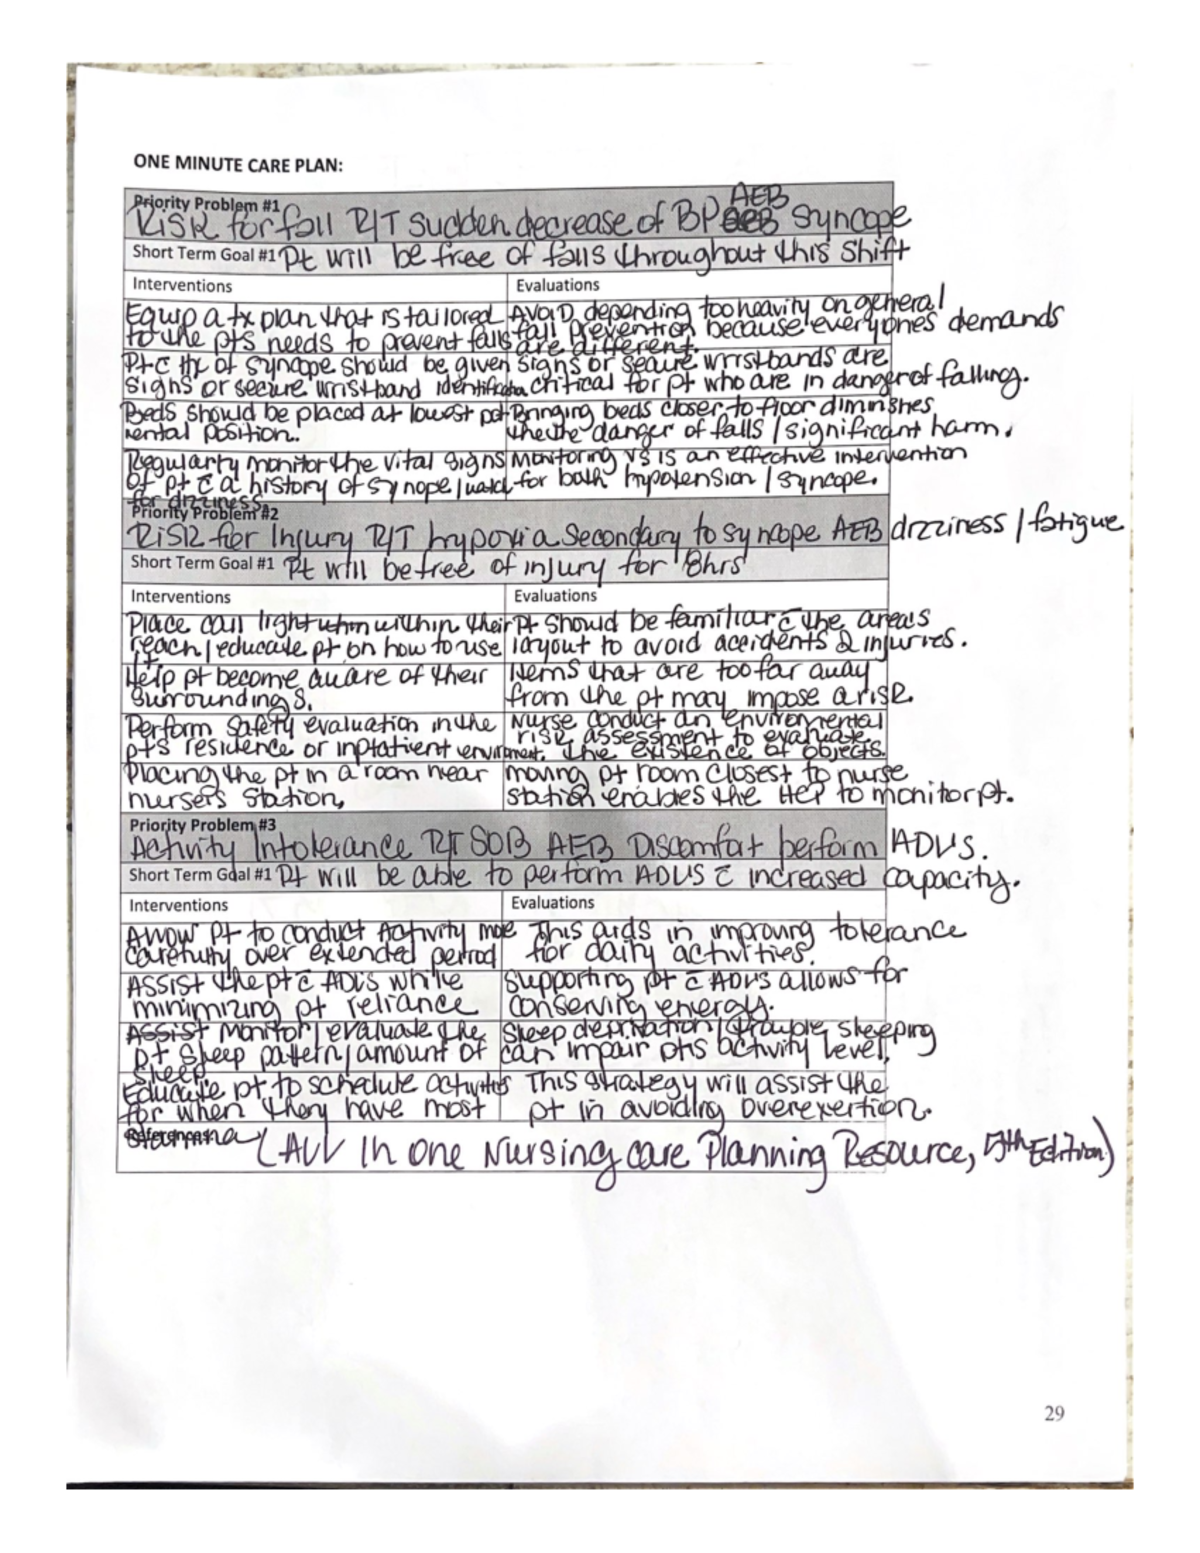 ONE MINUTE CARE PLAN:
Priority Problem #1
Risk for fall R/T sudden decrease of BP AEB syncope
Short Term Goal #1 Pt will be free of falls throughout this shift
Interventions
Evaluations
Equip a tx plan that is tailored
to the pts needs to prevent falls
Avoid depending too heavity on general
fall prevention because everyones demands
are different.
Pt c̄ Hx of syncope should be given
signs or secure wristband
signs or secure wristbands are
critical for pt who are in danger of falling.
Beds should be placed at lowest pot
rental position.
Bringing beds closer to floor diminishes
the danger of falls / significant harm.
Regularty monitor the vital signs
of pt c̄ a history of synope /
for dizziness
Monitoring VS is an effective intervention
for both hypotension / syncope.
Priority Problem #2
Risk for Injury R/T hypoxia secondary to syncope AEB dizziness / fatigue
Short Term Goal #1 Pt will be free of injury for 8hrs
Interventions
Evaluations
Place call light within their
reach / educate pt on how to use
it.
Pt should be familiar c̄ the areas
layout to avoid accidents & injuries.
Help pt become aware of their
surroundings.
Items that are too far away
from the pt may impose a risk.
Perform safety evaluation in the
pt's residence or inptatient
Nurse conduct an enviromental
risk assessment to evaluate
the existence of objects.
Placing the pt in a room near
nursers station,
moving pt room closest to nurse
station enables the HCP to monitor pt.
Priority Problem #3
Activity Intolerance R/T SOB AEB Discomfort perform ADLs.
Short Term Goal #1 Pt will be able to perform ADLs c̄ increased capacity.
Interventions
Evaluations
Allow pt to conduct Activity more
carefully over extended period
This aids in improving tolerance
for daily activities.
Assist the pt c̄ ADLs while
minimizing pt reliance
Supporting pt c̄ ADLs allows for
conserving energy.
Assist Monitor / evaluate the
pt sleep pattern / amount of
sleep
Sleep deprivation / trouble sleeping
can impair pts activity level,
Educate pt to schedule activities
for when they have most
stamina
This strategy will assist the
pt in avoiding overexertion.
References:
(All in one Nursing care Planning Resource, 5th Edition)
29